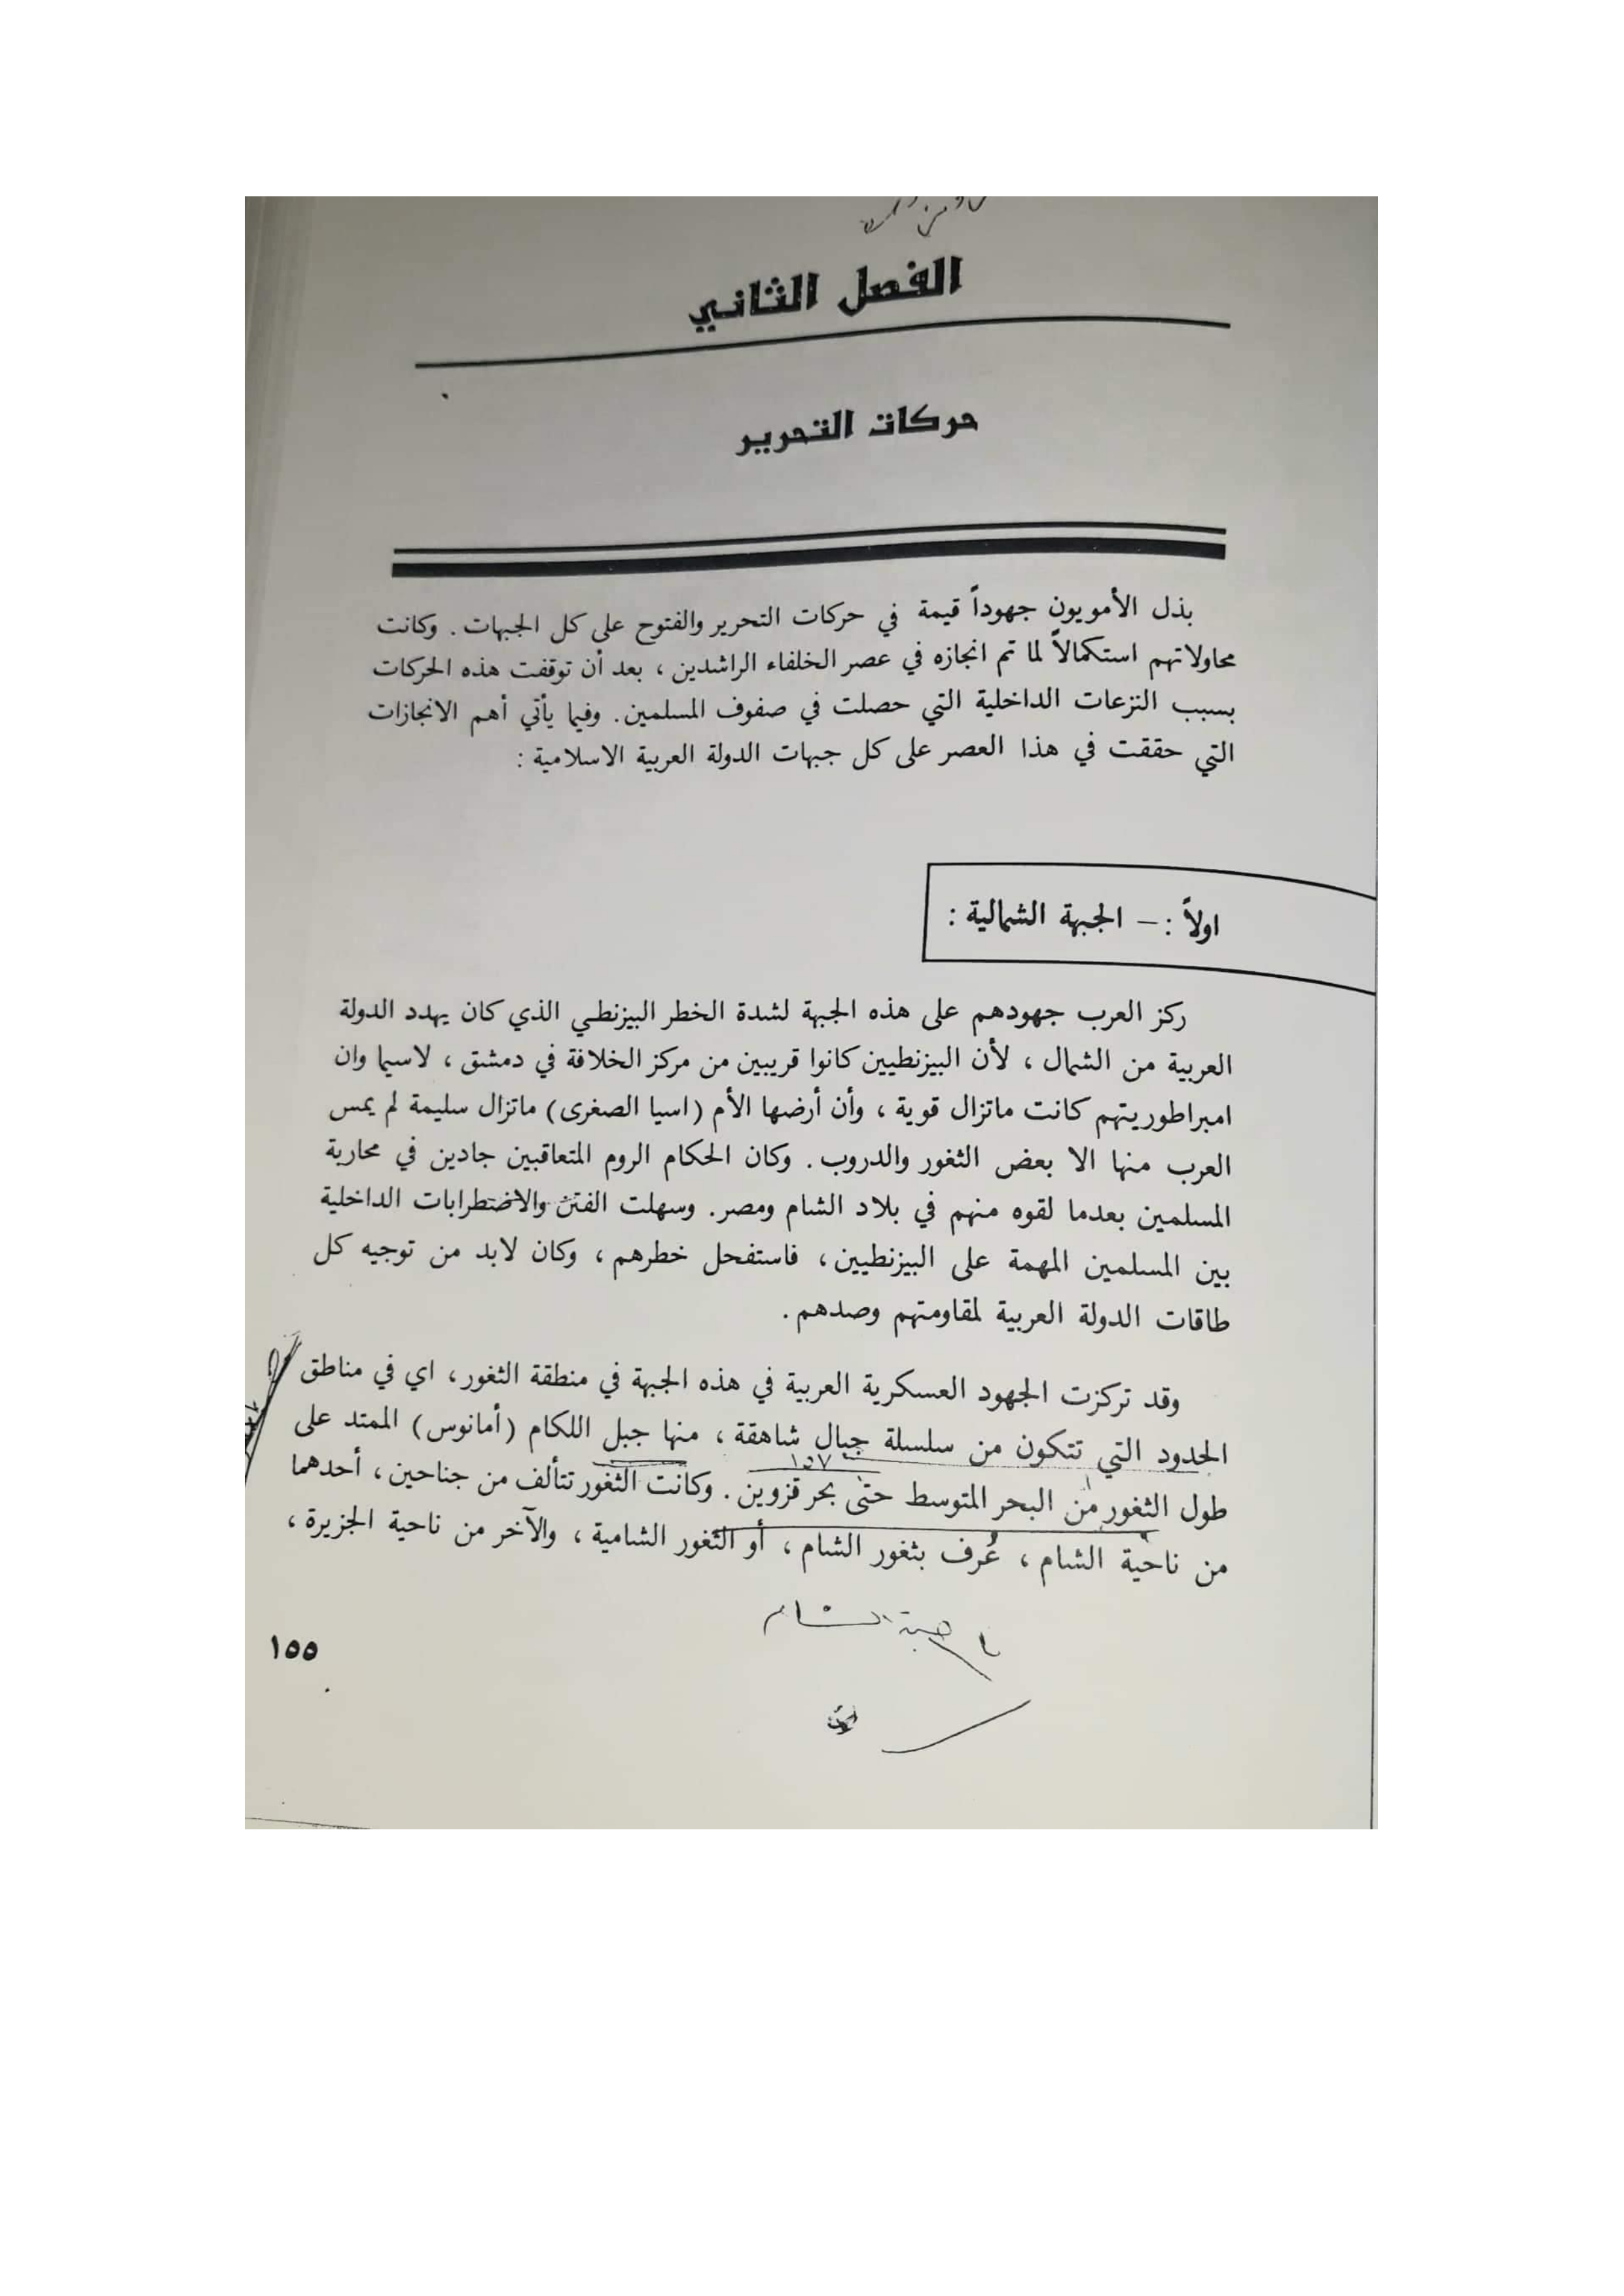 الفصل الثاني
حركات التحرير
بذل الأمويون جهوداً قيمة في حركات التحرير والفتوح على كل الجبهات . وكانت
محاولاتهم استكمالاً لما تم انجازه في عصر الخلفاء الراشدين ، بعد أن توقفت هذه الحركات
بسبب النزعات الداخلية التي حصلت في صفوف المسلمين . وفيما يأتي أهم الانجازات
التي حققت في هذا العصر على كل جبهات الدولة العربية الاسلامية :
اولاً : – الجبهة الشمالية :
ركز العرب جهودهم على هذه الجبهة لشدة الخطر البيزنطي الذي كان يهدد الدولة
العربية من الشمال ، لأن البيزنطيين كانوا قريبين من مركز الخلافة في دمشق ، لاسيما وان
امبراطوريتهم كانت ماتزال قوية ، وأن أرضها الأم (اسيا الصغرى) ماتزال سليمة لم يمس
العرب منها الا بعض الثغور والدروب . وكان الحكام الروم المتعاقبين جادين في محاربة
المسلمين بعدما لقوه منهم في بلاد الشام ومصر . وسهلت الفتن والاضطرابات الداخلية
بين المسلمين المهمة على البيزنطيين ، فاستفحل خطرهم ، وكان لابد من توجيه كل
طاقات الدولة العربية لمقاومتهم وصدهم .
وقد تركزت الجهود العسكرية العربية في هذه الجبهة في منطقة الثغور ، اي في مناطق
الحدود التي تتكون من سلسلة جبال شاهقة ، منها جبل اللكام (أمانوس) الممتد على
١٥٧
طول الثغور من البحر المتوسط حتى بحر قزوين . وكانت الثغور تتألف من جناحين ، أحدهما
من ناحية الشام ، عُرف بثغور الشام ، أو الثغور الشامية ، والآخر من ناحية الجزيرة ،
١٥٥